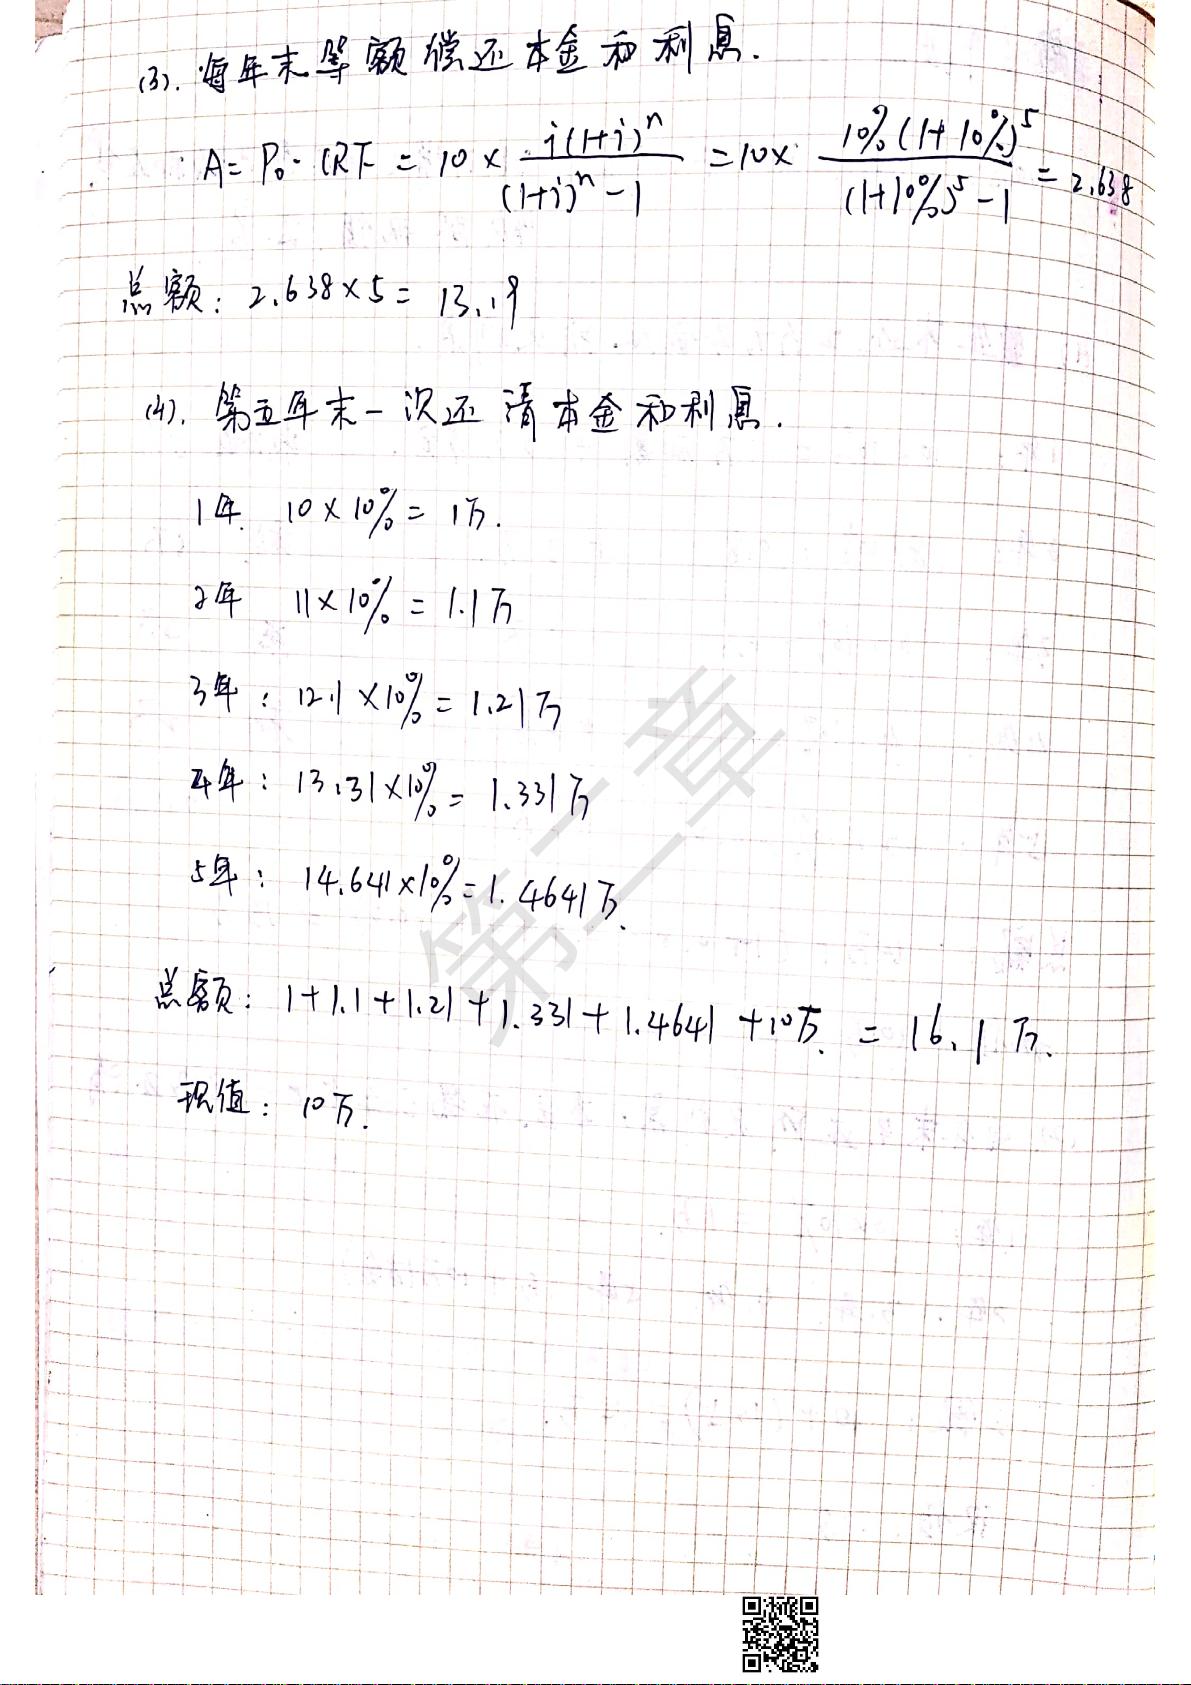 (3). 每年末等额偿还本金和利息.
A = P₀· CRF = 10 × i(1+i)ⁿ / (1+i)ⁿ - 1 = 10 × 10%(1+10%)⁵ / (1+10%)⁵ - 1 = 2.638
总额: 2.638 × 5 = 13.19
(4). 第五年末一次还清本金和利息.
1年. 10 × 10% = 1万.
2年 11 × 10% = 1.1万
3年: 12.1 × 10% = 1.21万
4年: 13.31 × 10% = 1.331万
5年: 14.641 × 10% = 1.4641万.
总额: 1 + 1.1 + 1.21 + 1.331 + 1.4641 + 10万. = 16.1万.
现值: 10万.
第二章